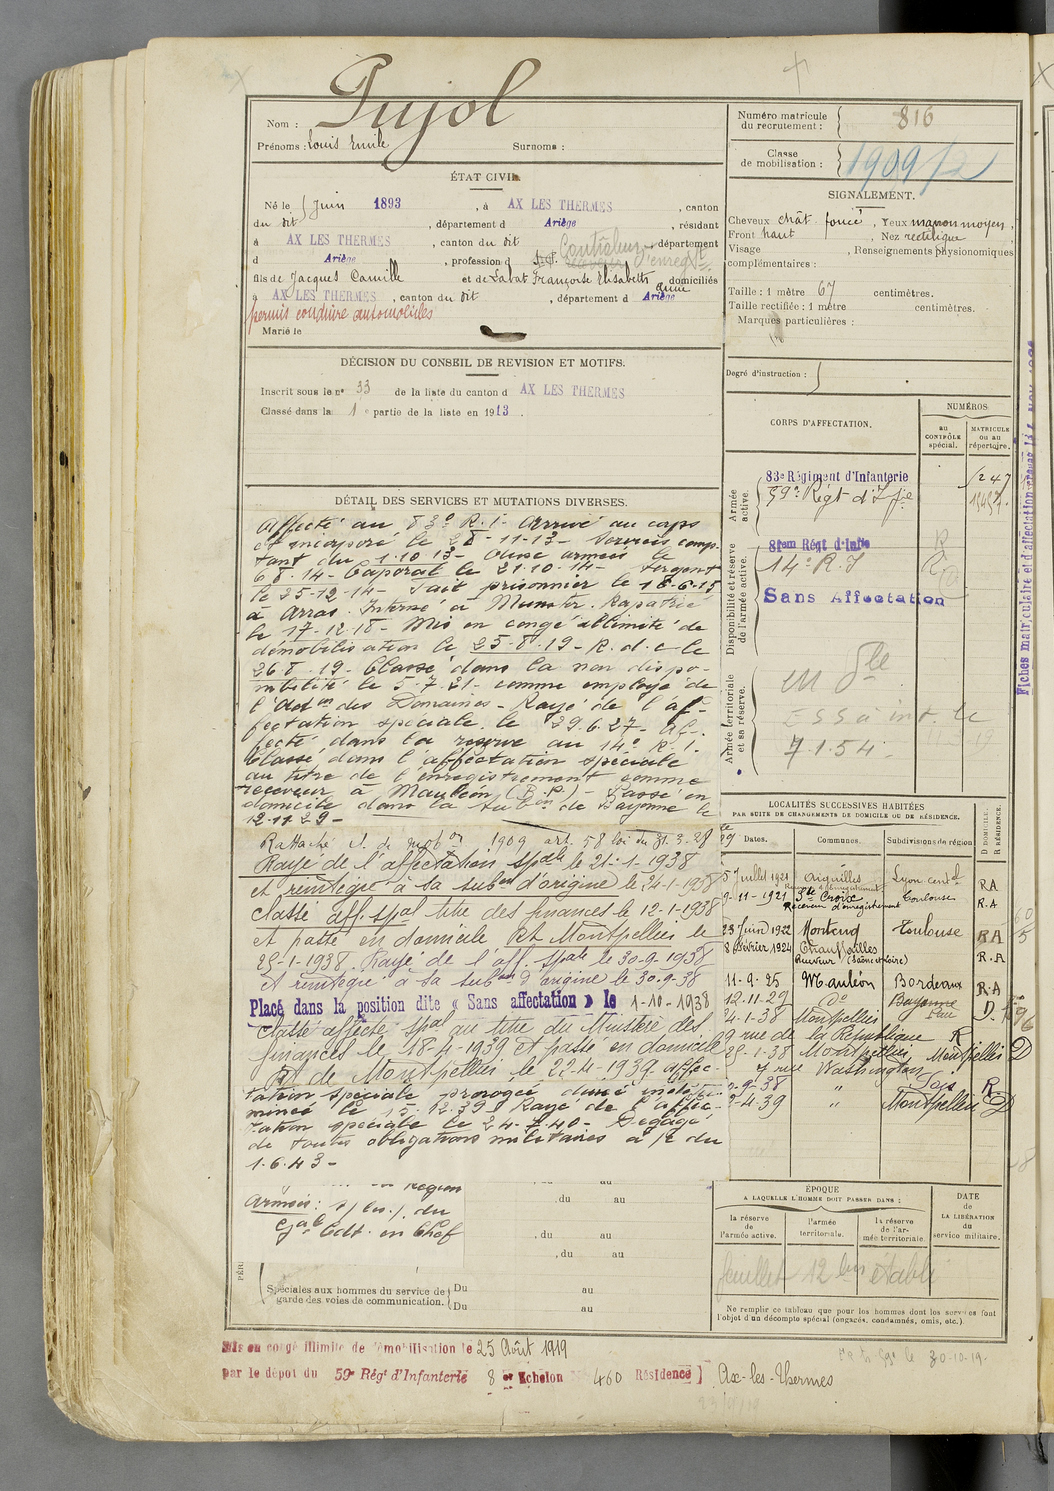 Pujol
Nom :
Prénoms : Louis Emile
Surnoms :
Numéro matricule
du recrutement :
816
Classe
de mobilisation :
1909/2
ÉTAT CIVIL
Né le 5 Juin 1893, à AX LES THERMES, canton
du dit, département d Ariège, résidant
à AX LES THERMES, canton du dit, département
d Ariège, profession d Contrôleur d'enregt
fils de Jacques Camille et de Labat Françoise Elisabeth Anne domiciliés
à AX LES THERMES, canton du dit, département d Ariège
permis conduire automobiles
Marié le
SIGNALEMENT.
Cheveux chât. foncé, Yeux marron moyen,
Front haut, Nez rectiligne
Visage, Renseignements physionomiques
complémentaires :
Taille : 1 mètre 67 centimètres.
Taille rectifiée : 1 mètre centimètres.
Marques particulières :
Degré d'instruction :
DÉCISION DU CONSEIL DE REVISION ET MOTIFS.
Inscrit sous le n° 33 de la liste du canton d AX LES THERMES
Classé dans la 1e partie de la liste en 1913.
CORPS D'AFFECTATION.
NUMÉROS
au
CONTRÔLE
spécial.
MATRICULE
ou au
répertoire.
Armée
active.
83e Régiment d'Infanterie
59e Régt d'Ifie
1247
Disponibilité et réserve
de l'armée active.
81em Régt d'Infie
14e R. I
R
Sans Affectation
Armée territoriale
et sa réserve.
en Dle
ESS à int. le
7.1.54
DÉTAIL DES SERVICES ET MUTATIONS DIVERSES.
Affecté au 83e R.I. Arrivé au corps
et incorporé le 28-11-13- Services comp-
tant du 1.10.13-
6.8.14- Caporal le 21.10.14- Sergent
le 25-12-14- Fait prisonnier le 18-6-15
à Arras. Interné à Munster. Rapatrié
le 17-12-18- Mis en congé illimité de
démobilisation le 25-8-19- R.d.c. le
26.8.19- Classé dans la non dispo-
nibilité le 5-7-21- comme employé de
l'Adon des Domaines- Rayé de l'af-
fectation spéciale le 29.6.27- Af-
fecté dans la réserve au 14e R.I.
Classé dans l'affectation spéciale
au titre de l'enregistrement comme
receveur à Mauléon (B.P.)- Passé en
domicile dans la subon de Bayonne le
12-11-29-
Rattaché cl. de mobon 1909 art. 58 loi du 31.3.28
Rayé de l'affectation spale le 21-1-1938
et réintégré à sa subon d'origine le 24-1-1938
Classé aff. spal titre des finances le 12-1-1938
et passé en domicile Rt Montpellier le
25-1-1938. Rayé de l'aff. spale le 30-9-1938
et réintégré à sa subon d'origine le 30-9-38
Placé dans la position dite « Sans affectation » le 1-10-1938
Classé affecté spal au titre du Ministère des
finances le 18-4-1939 et passé en domicile
Rt de Montpellier le 22-4-1939. Affec-
tation spéciale prorogée durée indéter-
minée le 15.12.39. Rayé de l'affec-
tation spéciale le 24-7-40- Dégagé
de toutes obligations militaires à /c du
1.6.43-
région
Armées : du
Gal Cdt. en Chef
, du au
, du au
, du au
Spéciales aux hommes du service de
garde des voies de communication.
Du au
Du au
LOCALITÉS SUCCESSIVES HABITÉES
PAR SUITE DE CHANGEMENTS DE DOMICILE OU DE RÉSIDENCE.
Dates.
Communes.
Subdivisions de région
D DOMICILE.
R RÉSIDENCE.
5 Juillet 1921 Aiguilles Lyon cent RA
9-11-1921 Ste Croix Toulouse R.A
Receveur d'enregistrement
23 Juin 1922 Montcuq Toulouse RA
8 février 1924 Chauffailles R.A
Receveur (Saône et Loire)
11-9-25 Mauléon Bordeaux R.A
12-11-29 do Bayonne D.
24-1-38 Montpellier
9 rue de la République R
25-1-38 Montpellier Montpellier D
7 rue Washington
-9-38 " R
-4-39 " Montpellier D
ÉPOQUE
A LAQUELLE L'HOMME DOIT PASSER DANS :
la réserve
de
l'armée active.
l'armée
territoriale.
la réserve
de l'ar-
mée territoriale.
DATE
de
LA LIBÉRATION
du
service militaire.
feuillet 12 bis établi
Ne remplir ce tableau que pour les hommes dont les services font
l'objet d'un décompte spécial (engagés, condamnés, omis, etc.).
Mis en congé illimité de démobilisation le 25 Août 1919
par le dépôt du 59e Régt d'Infanterie 8 er Echelon 460 Résidence Ax-les-Thermes
le 30-10-19